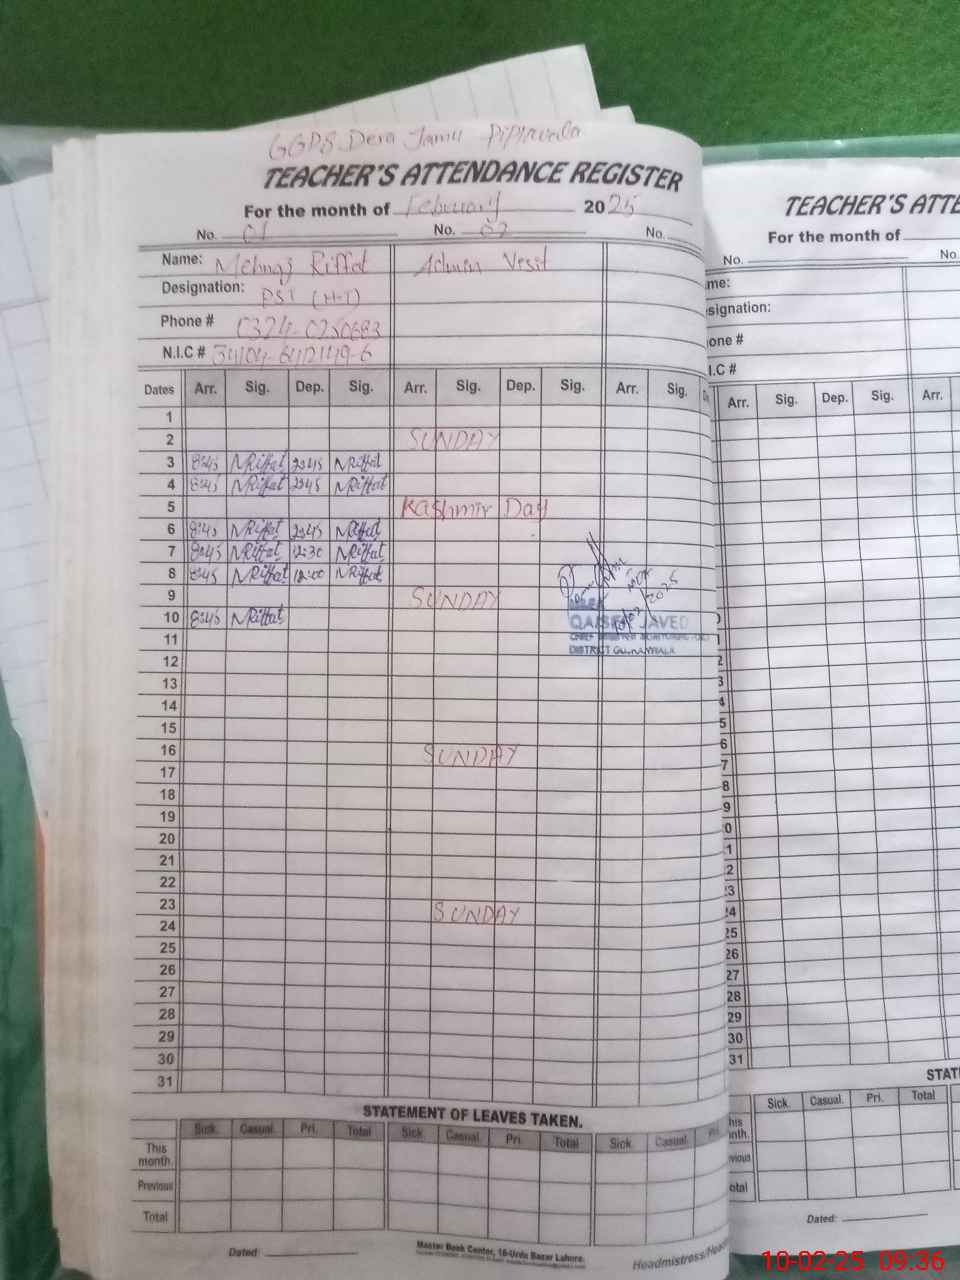 GGPS Dera Jamu Piplawala
TEACHER'S ATTENDANCE REGISTER
For the month of February 2025
No. 01 No. 02 No.
Name: Mehnaz Riffat Admin Vesit
Designation: PST (H-T)
Phone # 0324-0250683
N.I.C # 34104-6412149-6
Dates Arr. Sig. Dep. Sig. Arr. Sig. Dep. Sig. Arr. Sig.
1
2 SUNDAY
3 8:45 NRiffat 2:45 NRiffat
4 8:45 NRiffat 2:45 NRiffat
5 Kashmir Day
6 8:45 NRiffat 2:45 NRiffat
7 8:45 NRiffat 12:30 NRiffat
8 8:45 NRiffat 12:00 NRiffat
9 SUNDAY
10 8:45 NRiffat
10/02/2025
QAISER JAVED
DISTRICT GUJRANWALA
11
12
13
14
15
16 SUNDAY
17
18
19
20
21
22
23 SUNDAY
24
25
26
27
28
29
30
31
STATEMENT OF LEAVES TAKEN.
Sick. Casual. Pri. Total Sick. Casual. Pri. Total Sick. Casual. Pri.
This
month.
Previous
Total
Dated:
Master Book Center, 16-Urdu Bazar Lahore.
Headmistress/
TEACHER'S ATTE
For the month of
No. No.
me:
signation:
one #
I.C #
Arr. Sig. Dep. Sig. Arr.
0
1
2
3
4
5
6
7
8
9
0
1
2
3
24
25
26
27
28
29
30
31
STAT
Sick. Casual. Pri. Total
his
nth.
vious
otal
Dated:
10-02-25 09:36